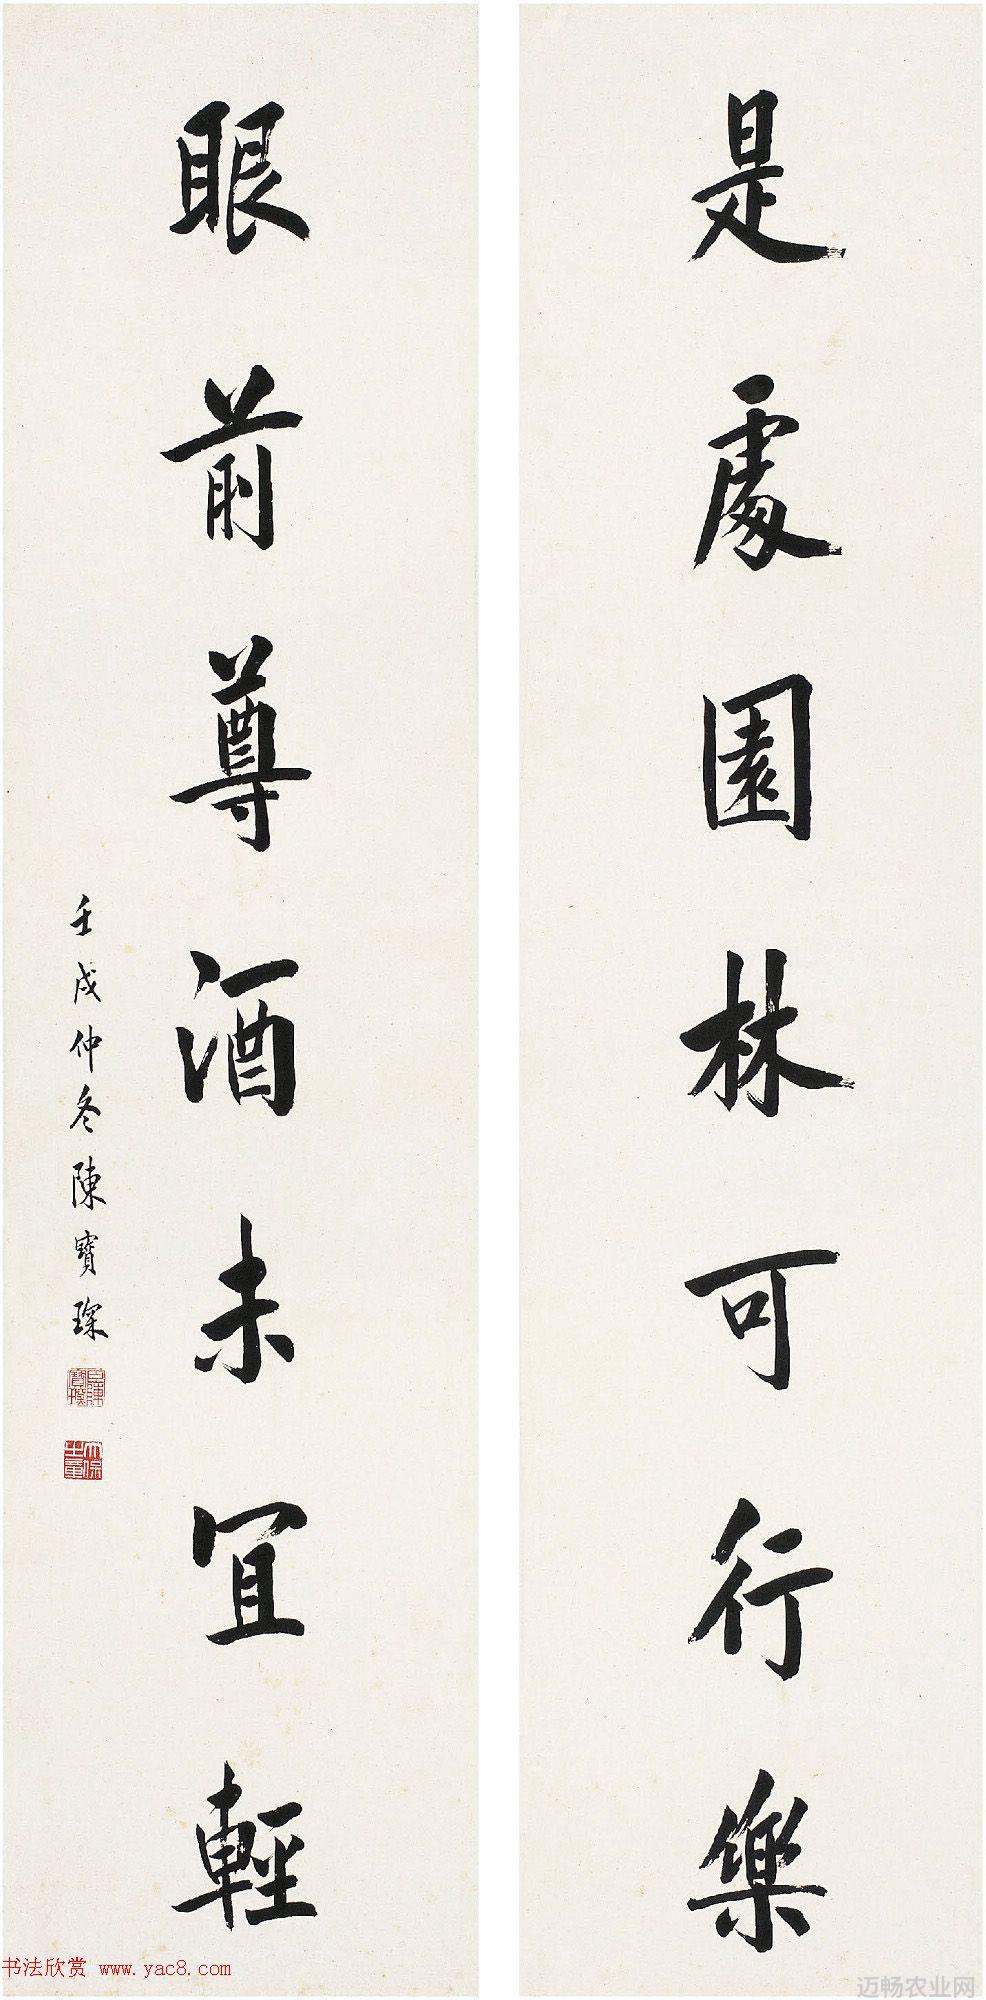 是處園林可行樂
眼前尊酒未宜輕
壬戌仲冬陳寶琛
书法欣赏 www.yac8.com
迈畅农业网